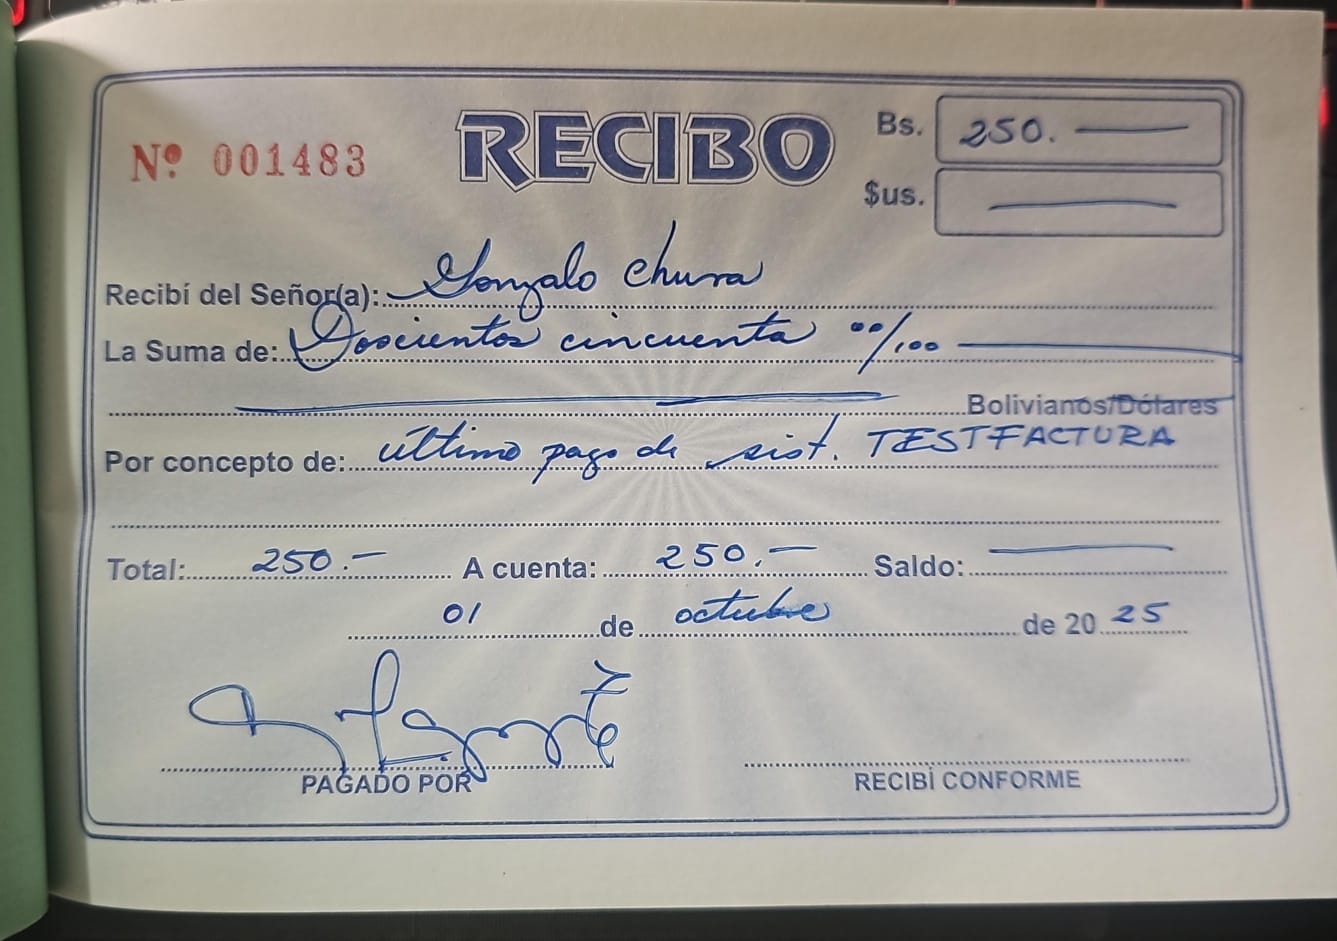 Nº 001483
RECIBO
Bs. 250.
$us.
Recibí del Señor(a): Gonzalo Chura
La Suma de: Doscientos cincuenta 00/100
Bolivianos/Dólares
Por concepto de: último pago de sist. TESTFACTURA
Total: 250.- A cuenta: 250.- Saldo:
01 de octubre de 2025
PAGADO POR
RECIBÍ CONFORME